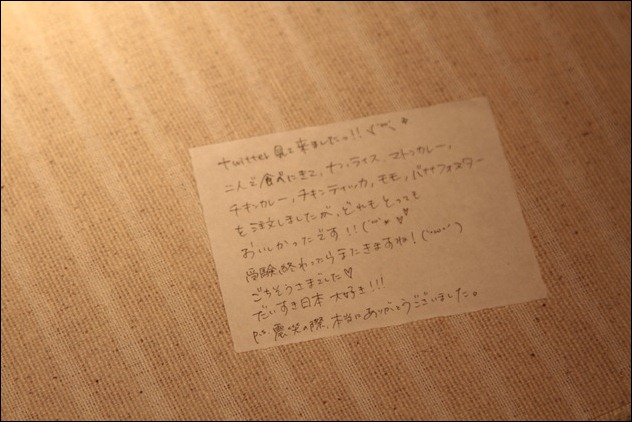 twitter 見て来ましたっ!!
二人で食べにきて、ナン、ライス、マトンカレー、
チキンカレー、チキンティッカ、モモ、バナナフォスター
を注文しましたが、どれもとっても
おいしかったです!!
受験終わったらまたきますね!(´ω`)
ごちそうさまでした♡
だいすき日本 大好き!!!
p.s. 震災の際、本当にありがとうございました。